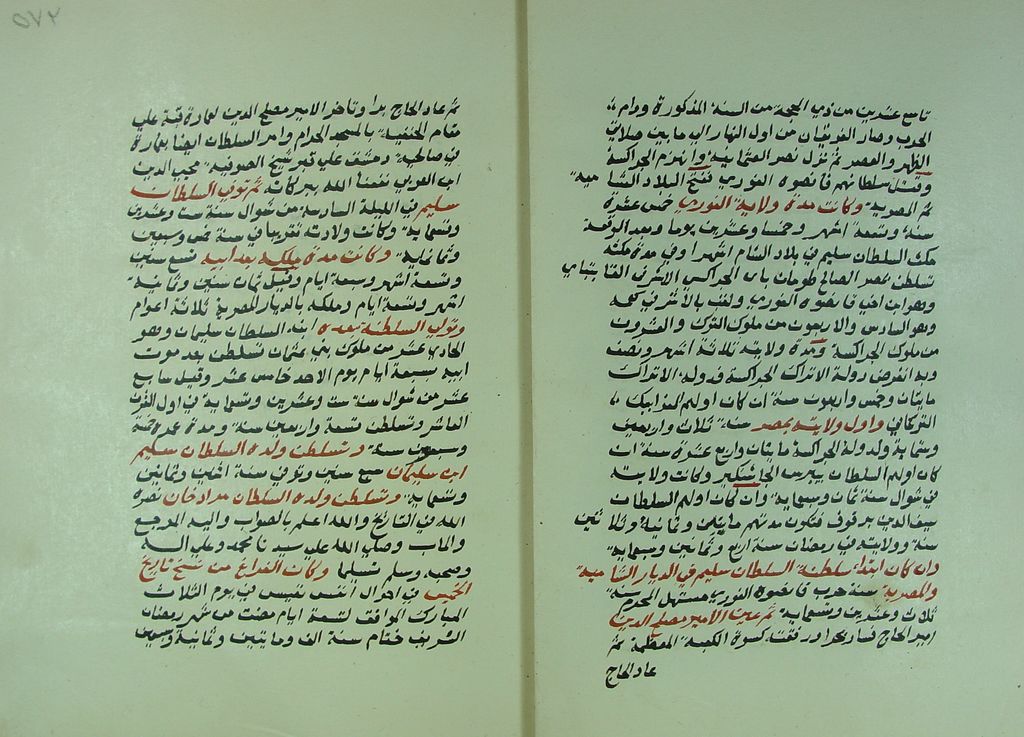 تاسع عشرين من ذي الحجة من السنة المذكورة ودام
الحرب وصار الفريقان من اول النهار الي ما بين صلاتي
الظهر والعصر ثم نزل نصر العثمانية وانهزم الجراكسة
وقتل سلطانهم قانصوه الغوري ففتح البلاد الشامية
ثم المصرية وكانت مدة ولاية الغوري خمس عشرة
سنة وتسعة اشهر وخمسا وعشرين يوما وبعد الوقعة
مكث السلطان سليم في بلاد الشام اشهرا وفي مدة مكثه
تسلطن بمصر الصالح طومان باي الجراكسي الاشرفي القايتباي
وهو ابن اخي قانصوه الغوري ولقب بالاشرف كعمه
وهو السادس والاربعون من ملوك الترك والعشرون
من ملوك الجراكسة ومدة ولايته ثلاثة اشهر ونصف
وبه انقرض دولة الاتراك الجراكسة فدولة الاتراك
مايتان وخمس واربعون سنة ان كان اولهم المعز ايبك
التركماني واول ولايته بمصر سنة ثلاث واربعين
وستماية ولدولة الجراكسة مايتان واربع عشرة سنة ان
كان اولهم السلطان بيبرس الجاشنكير وكانت ولايته
في شوال سنة ثمان وسبعماية وان كان اولهم السلطان
سيف الدين برقوق فتكون مدتهم ماية وثمانية وثلاثين
سنة وولايته في رمضان سنة اربع وثمانين وسبعماية
وان كان ابتداء سلطنة السلطان سليم في الديار الشامية
والمصرية سنة حرب قانصوه الغوري مستهل المحرم سنة
ثلاث وعشرين وتسعماية ثم عين الامير مصلح الدين
امير الحاج فسار بحرا ورفقته كسوة الكعبة المعظمة ثم
عاد الحاج
٥٧٢
ثم عاد الحاج برا وتاخر الامير مصلح الدين لعمارة قبة علي
مقام الحنفية بالمسجد الحرام وامر السلطان ايضا بعمارة
في صالحية دمشق علي قبر شيخ الصوفية محيي الدين
ابن العربي نفعنا الله ببركاته ثم توفي السلطان
سليم في الليلة السادسة من شوال سنة ست وعشرين
وتسماية وكانت ولادته تقريبا في سنة خمس وسبعين
وثمانماية وكانت مدة ملكه بعد ابيه تسع سنين
وتسعة اشهر وسبعة ايام وقيل ثمان سنين وثمانية
اشهر وتسعة ايام وملكه بالديار المصرية ثلاثة اعوام
وتولي السلطنة بعده ابنه السلطان سليمان وهو
الحادي عشر من ملوك بني عثمان تسلطن بعد موت
ابيه بسبعة ايام يوم الاحد خامس عشر وقيل سابع
عشر من شوال سنة ست وعشرين وتسماية في اول القرن
العاشر وتسلطن تسعة واربعين سنة ومدة عمره خمسة
وسبعين سنة وتسلطن ولده السلطان سليم
ابن سليمان سبع سنين وتوفي سنة اثنين وثمانين
وتسماية وتسلطن ولده السلطان مراد خان نصره
الله في التاريخ والله اعلم بالصواب واليه المرجع
والماب وصلي الله علي سيدنا محمد وعلي اله
وصحبه وسلم تسليما وكان الفراغ من نسخ تاريخ
الخميس في احوال انفس نفيس في يوم الثلاث
المبارك الموافق لتسعة ايام مضت من شهر رمضان
الشريف ختام سنة الف ومايتين وثمانية وسبعين